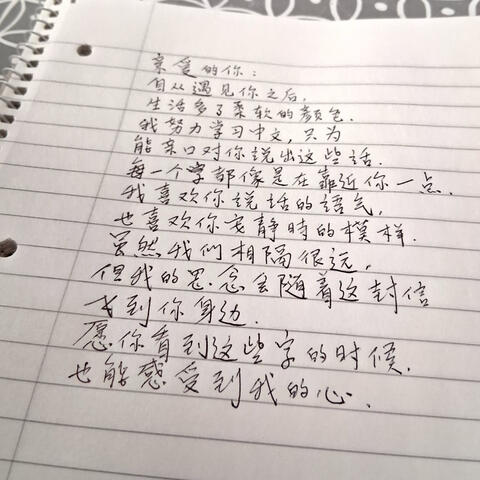 亲爱的你：
自从遇见你之后，
生活多了柔软的颜色．
我努力学习中文，只为
能亲口对你説出这些话．
每一个字都像是在靠近你一点．
我喜欢你说话的语气，
也喜欢你安静時的模样．
虽然我们相隔很远，
但我的思念会随着这封信
飞到你身边．
愿你看到这些字的时候，
也能感受到我的心．